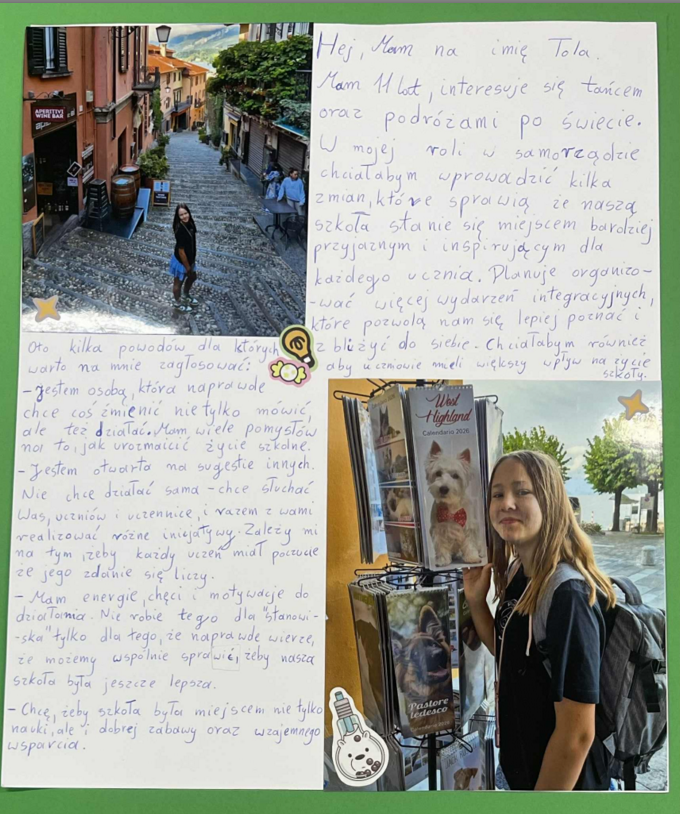 Hej, Mam na imię Tola.
Mam 11 lat, interesuje się tańcem
oraz podróżami po świecie.
W mojej roli w samorządzie
chciałabym wprowadzić kilka
zmian, które sprawią że naszą
szkoła stanie się miejscem bardziej
przyjaznym i inspirującym dla
każdego ucznia. Planuje organizo-
-wać więcej wydarzeń integracyjnych,
które pozwolą nam się lepiej poznać i
zbliżyć do siebie. Chciałabym również
aby uczniowie mieli większy wpływ na życie
szkoły.
Oto kilka powodów dla których
warto na mnie zagłosować:
- Jestem osobą, która naprawde
chce coś zmienić nie tylko mówić,
ale też działać. Mam wiele pomysłów
na to, jak urozmaicić życie szkolne.
- Jestem otwarta na sugestie innych.
Nie chce działać sama - chce słuchać
Was, uczniów i uczennice, i razem z wami
realizować różne inicjatywy. Zależy mi
na tym, żeby każdy uczeń miał poczucie
że jego zdanie się liczy.
- Mam energie, chęci i motywacje do
działania. Nie robie tego dla "stanowi-
-ska" tylko dla tego, że naprawde wierze,
że możemy wspólnie sprawić, żeby nasza
szkoła była jeszcze lepsza.
- Chcę, żeby szkoła była miejscem nie tylko
nauki, ale i dobrej zabawy oraz wzajemnego
wsparcia.
APERITIVI
WINE BAR
West
Highland
Calendario 2026
Pastore
tedesco